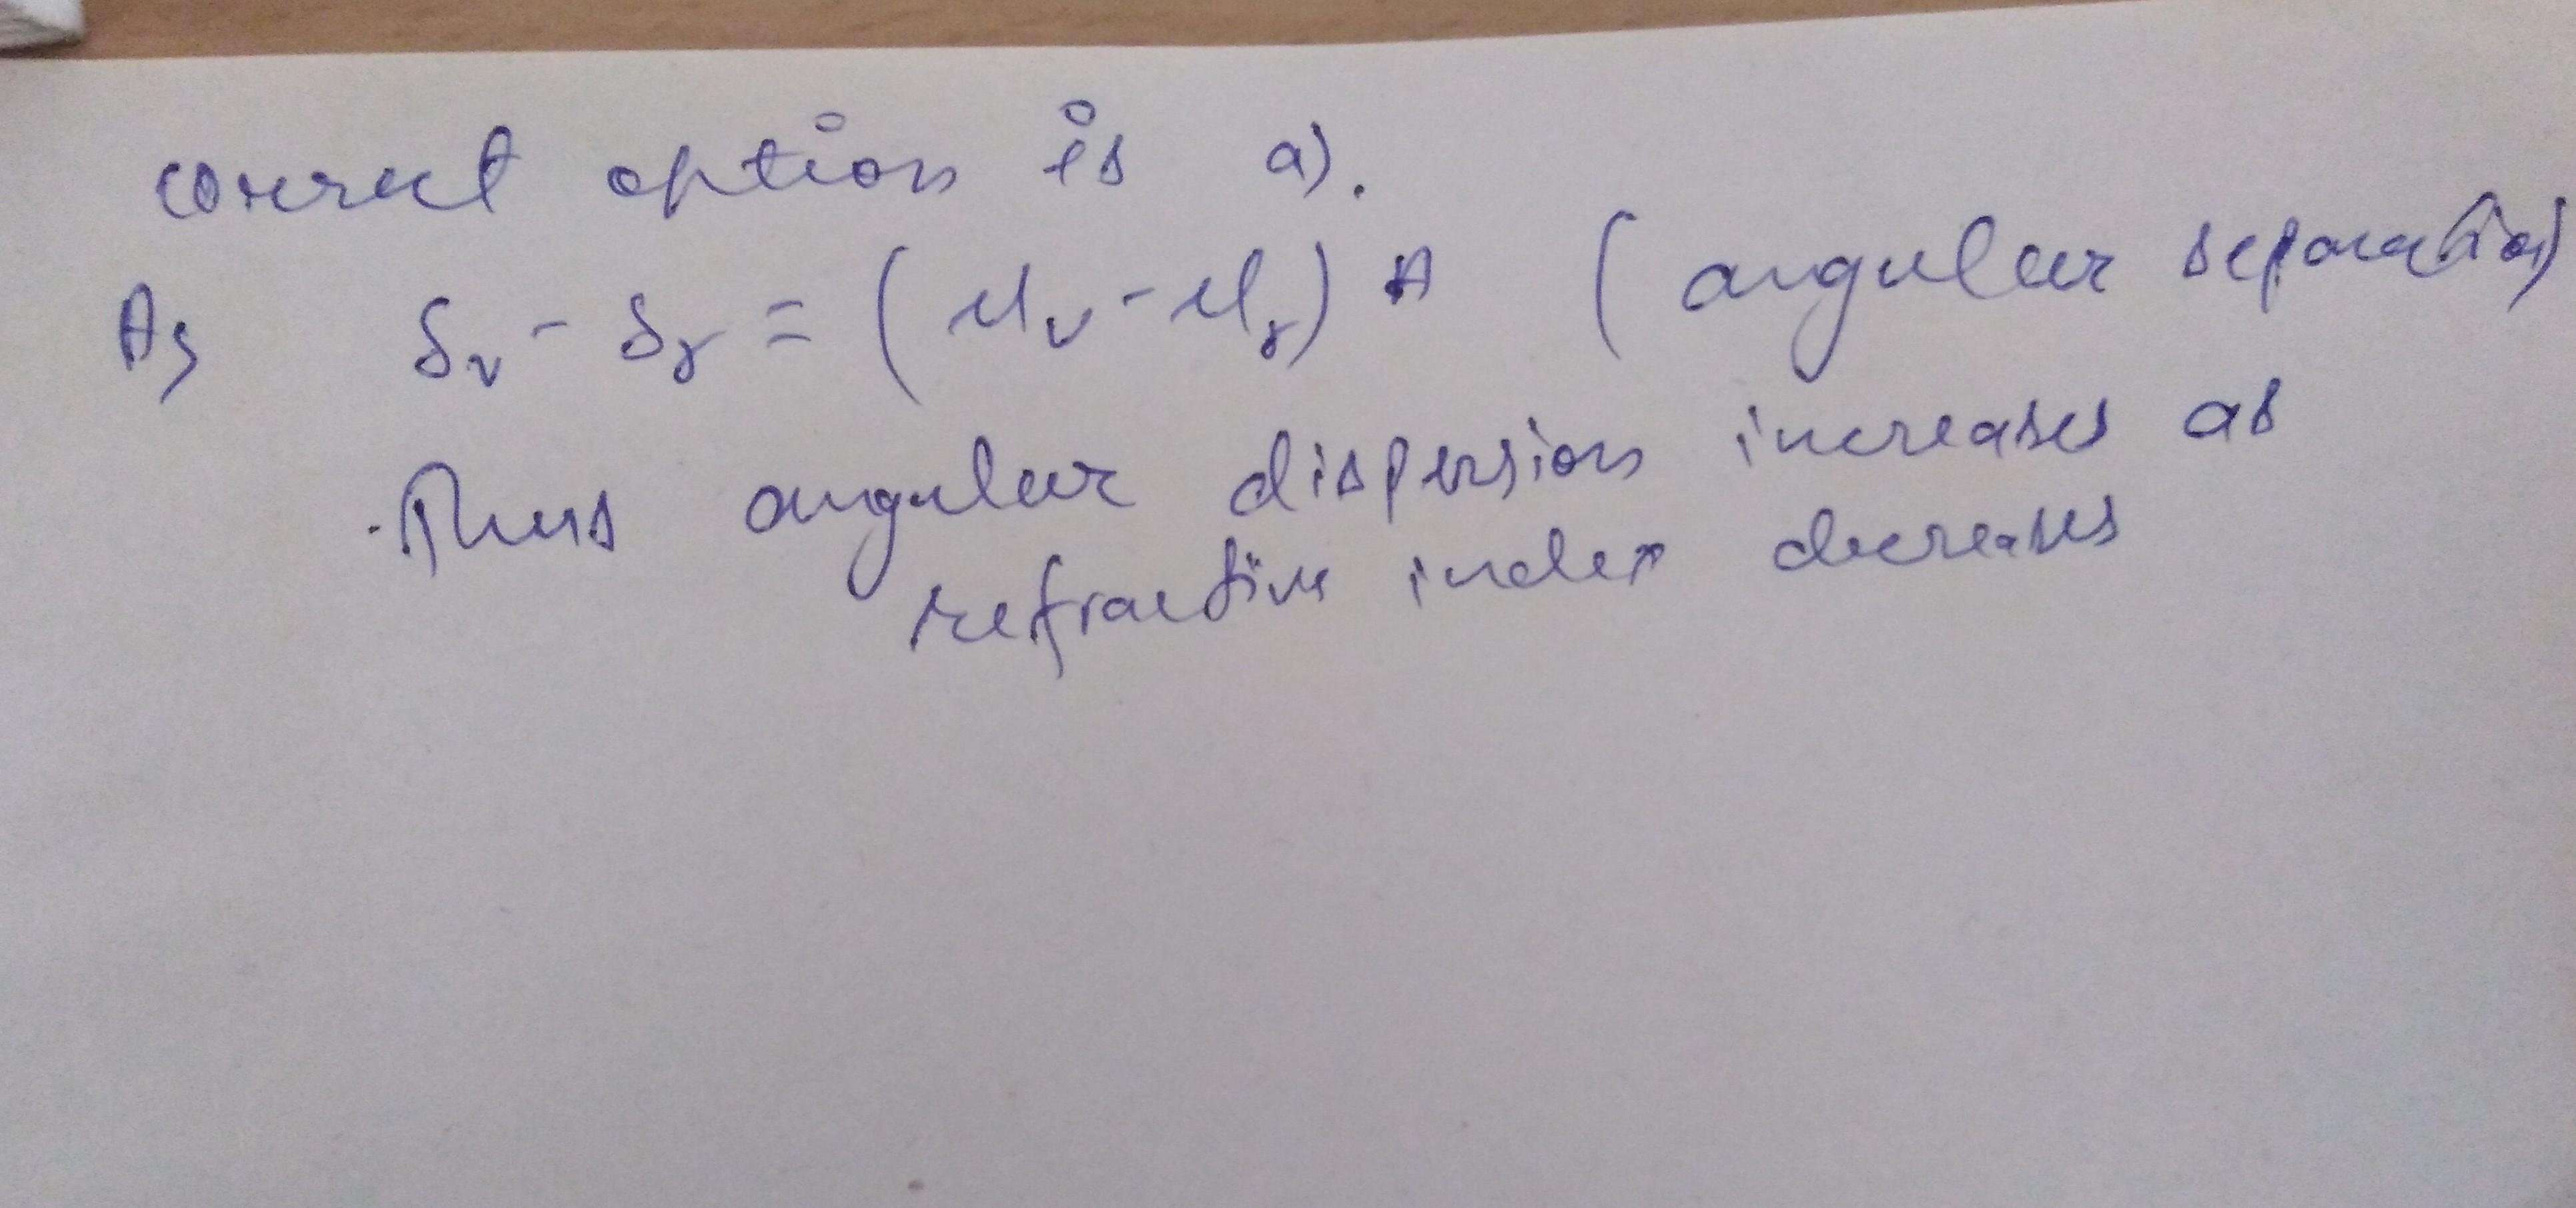 correct option is a).
As δv - δr = (μv - μr) A (angular separation)
Thus angular dispersion increases as
refractive index decreases